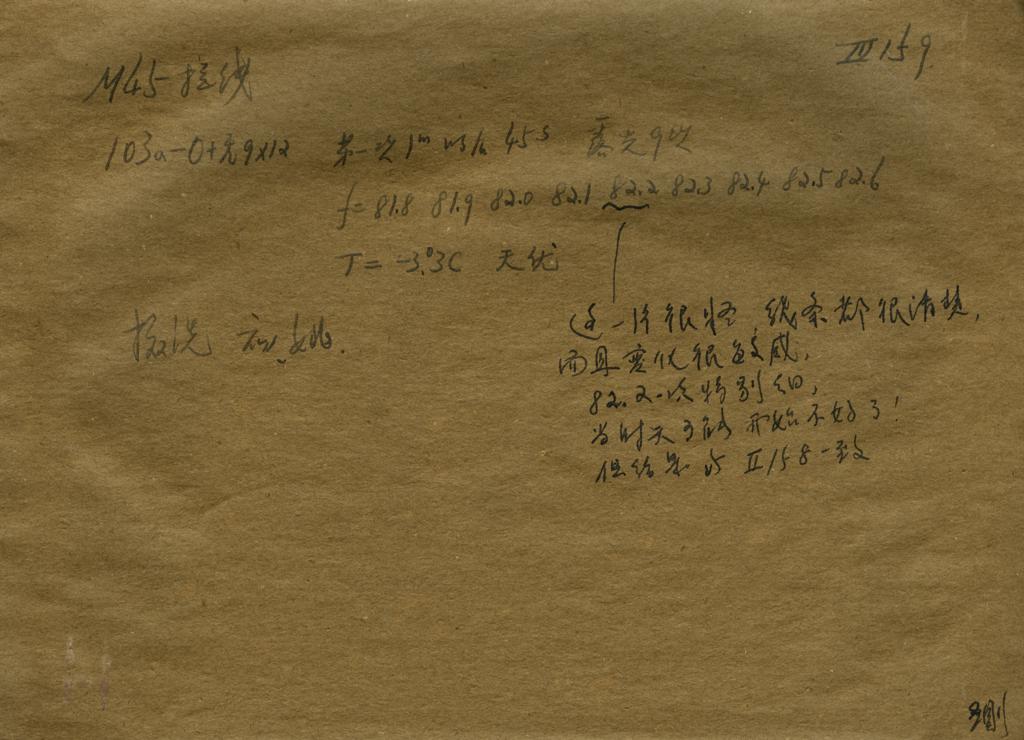 III 159
M45 拉线
103a-O+亮9x12 第一次1ᵐ 以后45ˢ 露光9次
f=81.8 81.9 82.0 82.1 82.2 82.3 82.4 82.5 82.6
T=-3.°3C 天优
这一片很怪,线条都很清楚,
摄洗
而且变化很
82.2一次特别细,
当时天可能开始不好了!
但结果与II158一致